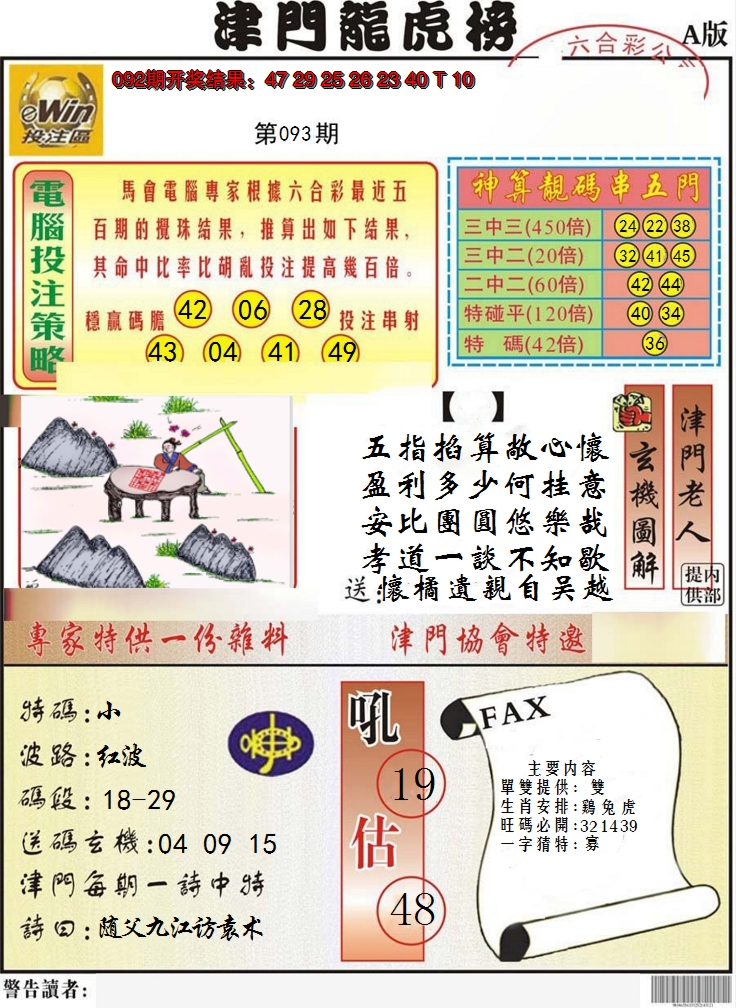 津門龍虎榜
A版
六合彩公
eWin
投注區
092期开奖结果：47 29 25 26 23 40 T 10
第093期
電腦投注策略
馬會電腦專家根據六合彩最近五
百期的攪珠结果，推算出如下结果，
其命中比率比胡亂投注提高幾百倍。
穩贏碼膽 42 06 28 投注串射
43 04 41 49
神算靚碼串五門
三中三(450倍) 24 22 38
三中二(20倍) 32 41 45
二中二(60倍) 42 44
特碰平(120倍) 40 34
特 碼(42倍) 36
【 】
五指掐算敞心懷
盈利多少何挂意
安比團圓悠樂哉
孝道一談不知歇
送:懷橘遺親自吴越
玄機圖解
津門老人
内部提供
專家特供一份雜料
津門協會特邀
特碼:小
波路:红波
碼段:18-29
送碼玄機:04 09 15
津門每期一詩中特
詩曰:随父九江访袁术
吼
19
估
48
FAX
主要内容
單雙提供：雙
生肖安排:鷄兔虎
旺碼必開:321439
一字猜特:寡
警告讀者: